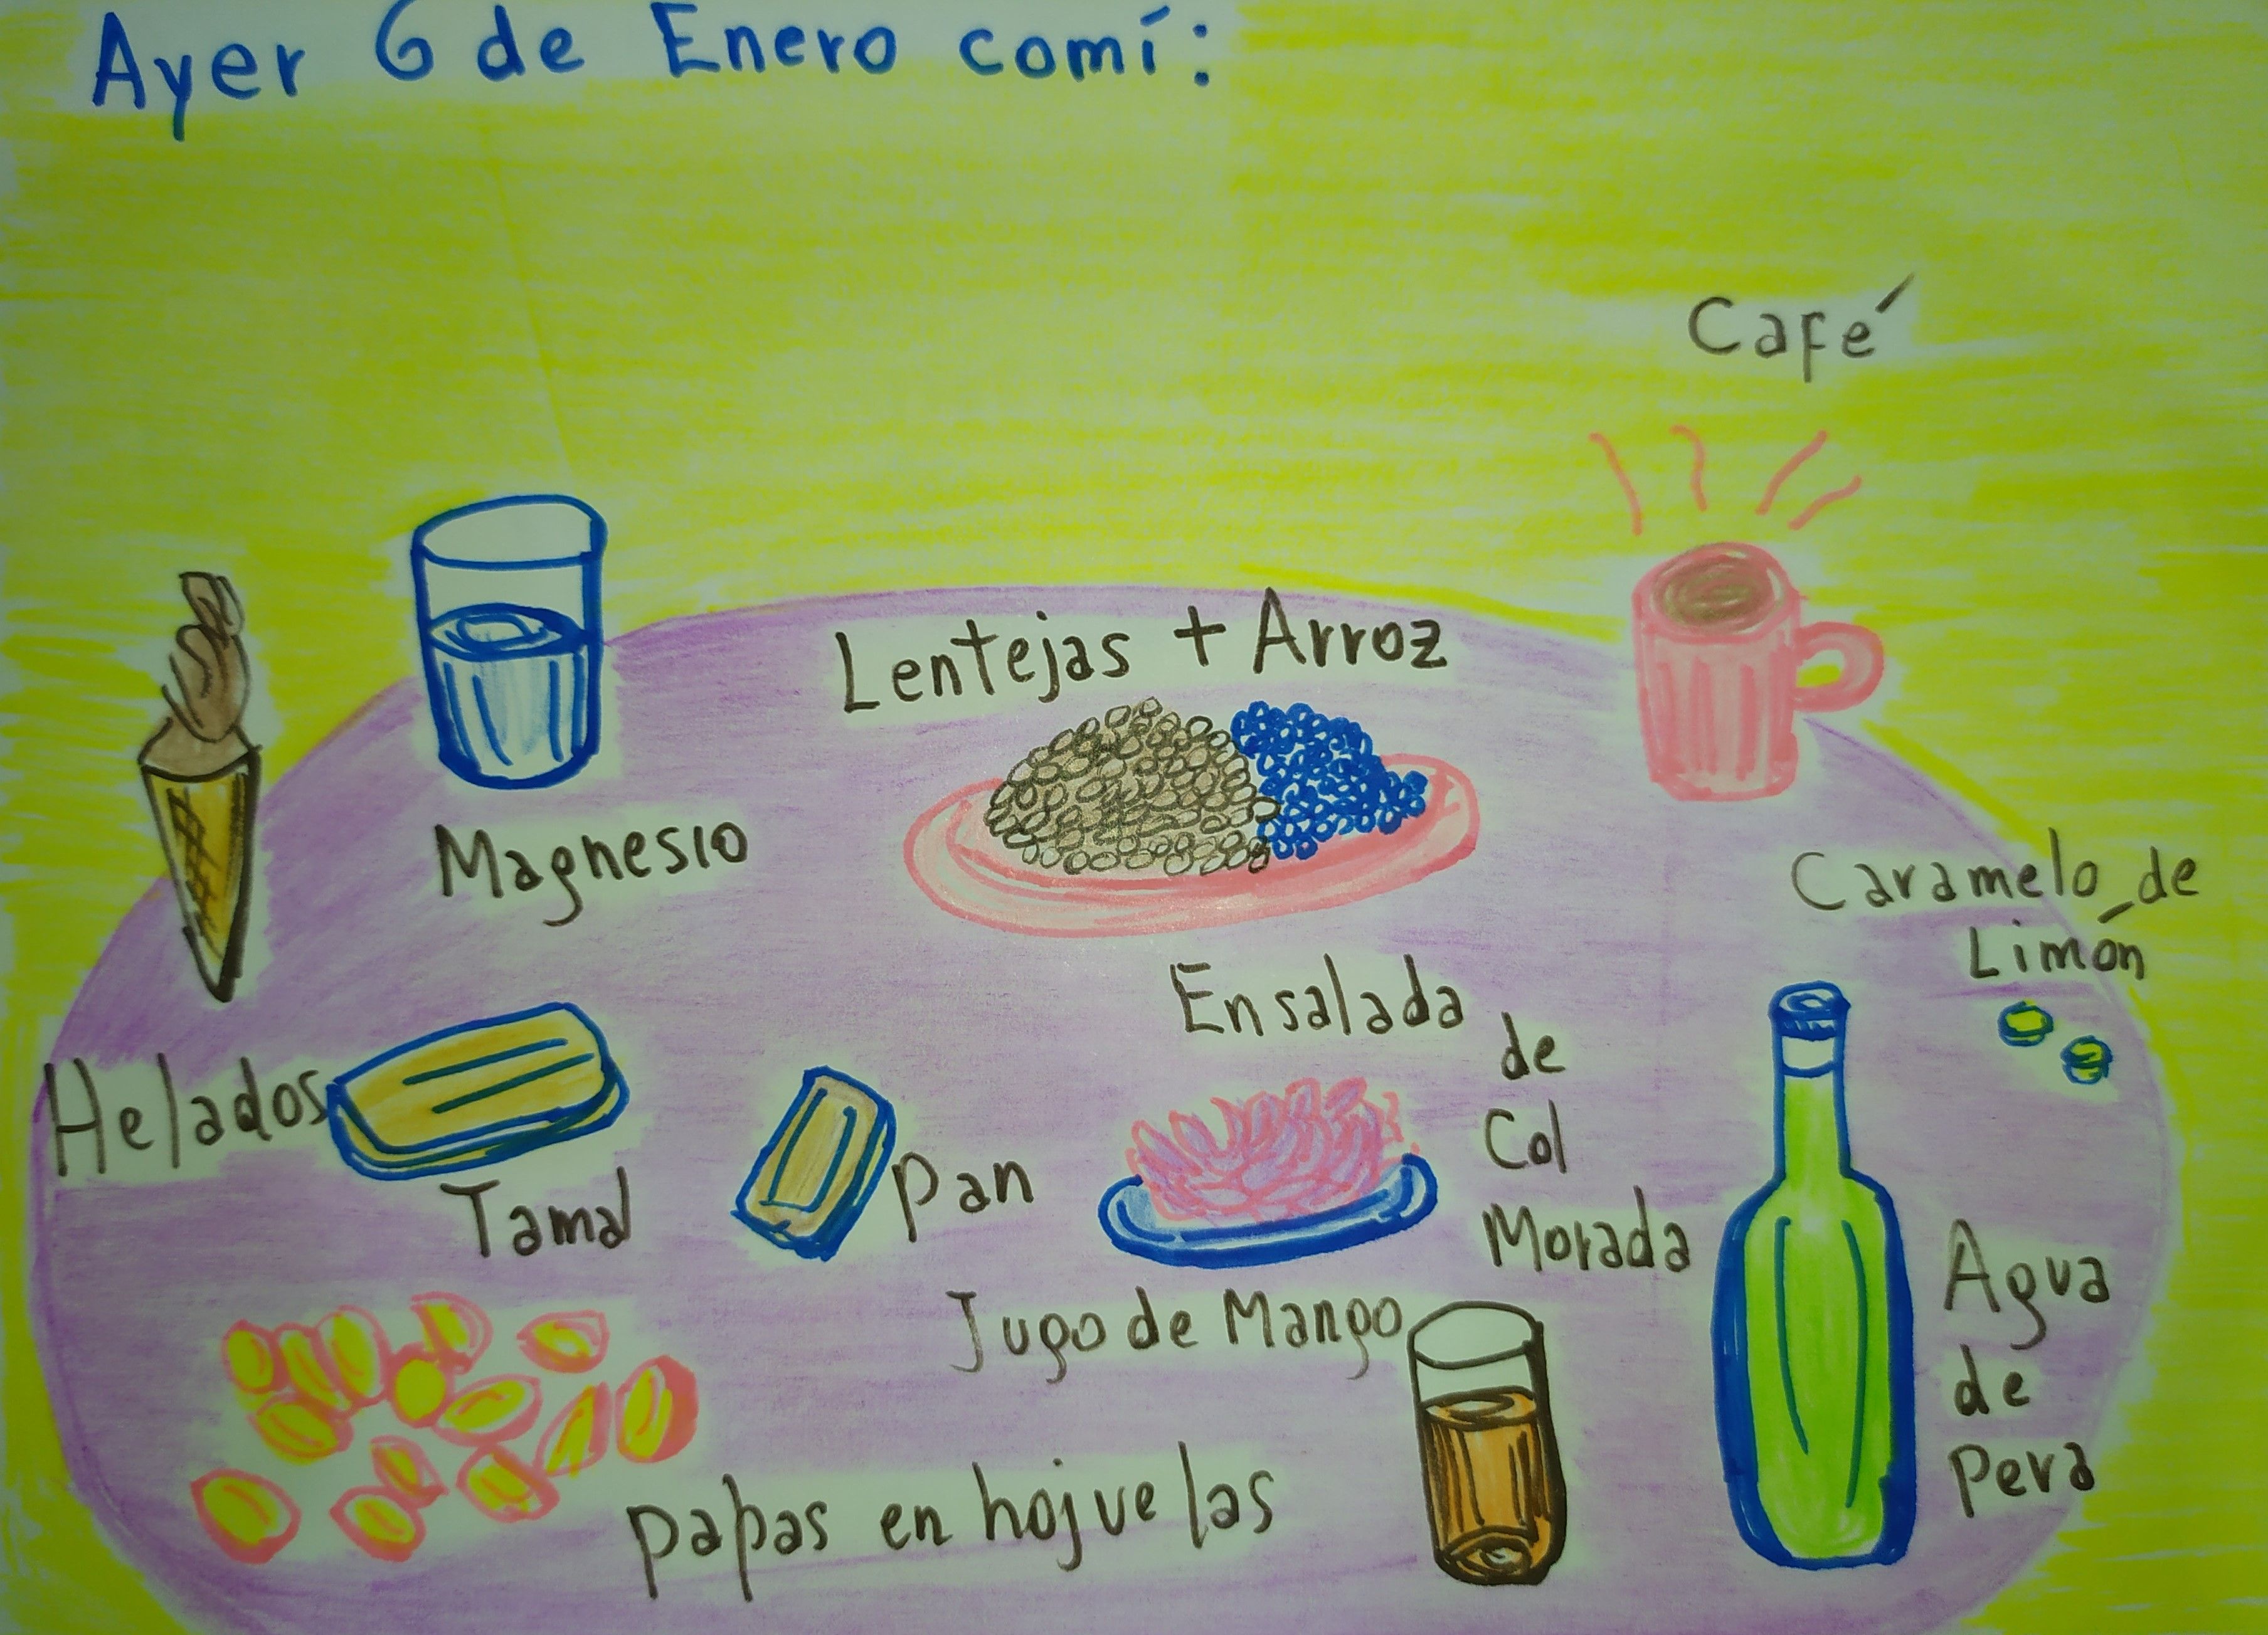 Ayer 6 de Enero comí:
Café
Lentejas + Arroz
Magnesio
Caramelo de
Limón
Ensalada
de
Col
Morada
Helados
Tamal
Pan
Jugo de Mango
Agua
de
Pera
Papas en hojuelas